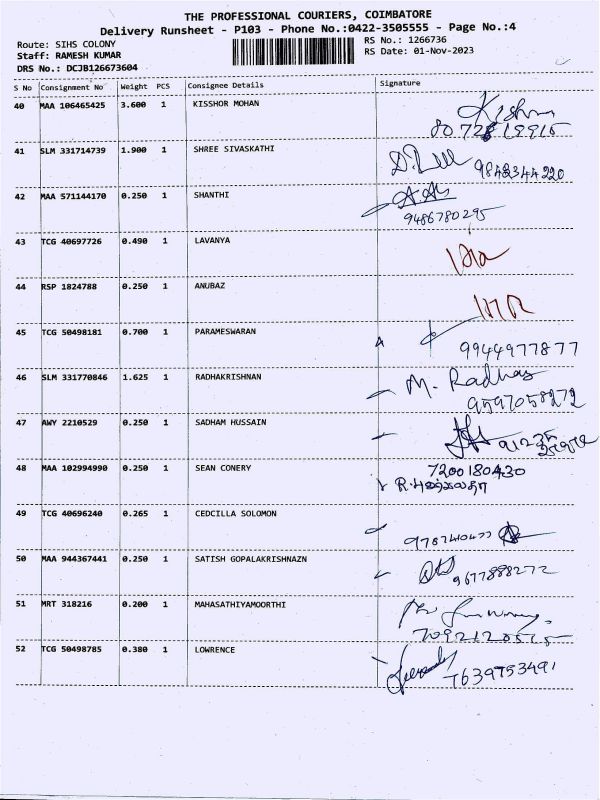 THE PROFESSIONAL COURIERS, COIMBATORE
Delivery Runsheet - P103 - Phone No.:0422-3505555 - Page No.:4
Route: SIHS COLONY RS No.: 1266736
Staff: RAMESH KUMAR RS Date: 01-Nov-2023
DRS No.: DCJB126673604
S No Consignment No Weight PCS Consignee Details Signature
40 MAA 106465425 3.600 1 KISSHOR MOHAN
41 SLM 331714739 1.900 1 SHREE SIVASKATHI
9842344220
42 MAA 571144170 0.250 1 SHANTHI
9486780295
43 TCG 40697726 0.490 1 LAVANYA
44 RSP 1824788 0.250 1 ANUBAZ
45 TCG 50498181 0.700 1 PARAMESWARAN
9944977877
46 SLM 331770846 1.625 1 RADHAKRISHNAN M. Radhas
9597058272
47 AWY 2210529 0.250 1 SADHAM HUSSAIN
48 MAA 102994990 0.250 1 SEAN CONERY 7200180430
49 TCG 40696240 0.265 1 CEDCILLA SOLOMON
50 MAA 944367441 0.250 1 SATISH GOPALAKRISHNAZN
9677888272
51 MRT 318216 0.200 1 MAHASATHIYAMOORTHI
52 TCG 50498785 0.380 1 LOWRENCE
7639753491